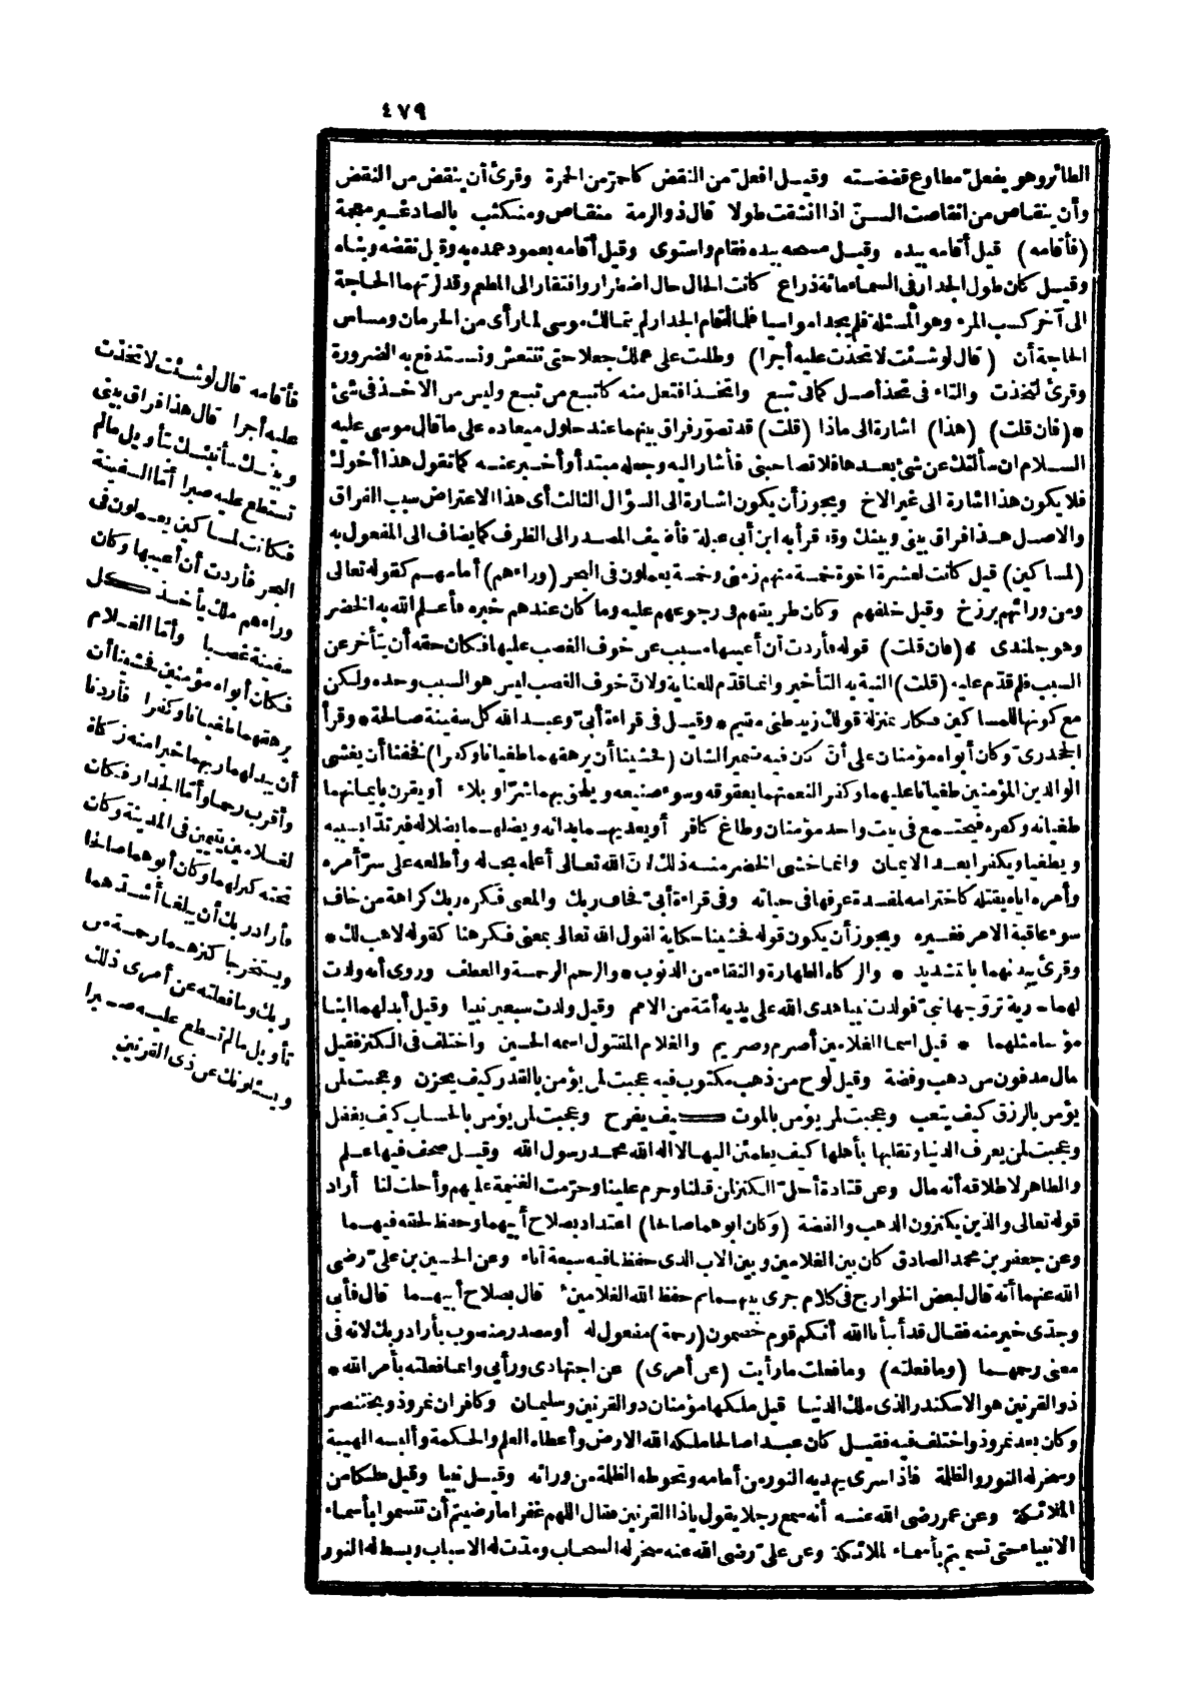 ٤٧٩
الطائر وهو يفعل مطاوع قضضته وقيل افعل من النقض كاحمر من الحمرة وقرئ أن ينقض من النقض
وأن ينقاص من انقاصت السن اذا انشقت طولا قال ذو الرمة منقاص ومنكثب بالصاد غير معجمة
(فأقامه) قيل أقامه بيده وقيل مسحه بيده فقام واستوى وقيل أقامه بعمود عمده به وقيل نقضه وبناه
وقيل كان طول الجدار فى السماء مائة ذراع كانت الحال حال اضطرار وافتقار الى المطعم وقد لزتهما الحاجة
الى آخر كسب المرء وهو المسئلة فلم يجدا مواسيا فلما أقام الجدار لم يتمالك موسى لما رأى من الحرمان ومساس
الحاجة أن (قال لو شئت لاتخذت عليه أجرا) وطلبت على عملك جعلا حتى ننتعش ونستدفع به الضرورة
وقرئ لتخذت والتاء فى تخذ أصل كما فى تبع واتخذ افتعل منه كاتبع من تبع وليس من الاخذ فى شئ
• (فان قلت) (هذا) اشارة الى ماذا (قلت) قد تصور فراق بينهما عند حلول ميعاده على ما قال موسى عليه
السلام ان سألتك عن شئ بعدها فلا تصاحبنى فأشار اليه وجعله مبتدأ وأخبر عنه كما تقول هذا أخوك
فلا يكون هذا اشارة الى غير الاخ ويجوز أن يكون اشارة الى السؤال الثالث أى هذا الاعتراض سبب الفراق
والاصل هذا فراق بينى وبينك وقد قرأ به ابن أبى عبلة فأضيف المصدر الى الظرف كما يضاف الى المفعول به
(لمساكين) قيل كانت لعشرة اخوة خمسة منهم زمنى وخمسة يعملون فى البحر (وراءهم) أمامهم كقوله تعالى
ومن ورائهم برزخ وقيل خلفهم وكان طريقهم فى رجوعهم عليه وما كان عندهم خبره فأعلم الله به الخضر
وهو جلندى • (فان قلت) قوله فأردت أن أعيبها مسبب عن خوف الغصب عليها فكان حقه أن يتأخر عن
السبب فلم قدم عليه (قلت) النية به التأخير وانما قدم للعناية ولان خوف الغصب ليس هو السبب وحده ولكن
مع كونها للمساكين فكان بمنزلة قولك زيد ظنى مقيم • وقيل فى قراءة أبى وعبد الله كل سفينة صالحة • وقرأ
الجحدرى وكان أبواه مؤمنان على أن كان فيه ضمير الشان (فخشينا أن يرهقهما طغيانا وكفرا) فخفنا أن يغشى
الوالدين المؤمنين طغيانا عليهما وكفرا لنعمتهما بعقوقه وسوء صنيعه ويلحق بهما شرا وبلاء أو يقرن بايمانهما
طغيانه وكفره فيجتمع فى بيت واحد مؤمنان وطاغ كافر أو يعديهما بدائه ويضلهما بضلاله فيرتدا بسببه
ويطغيا ويكفرا بعد الايمان وانما خشى الخضر منه ذلك لان الله تعالى أعلمه بحاله وأطلعه على سر أمره
وأمره اياه بقتله كاخترامه لمفسدة عرفها فى حياته وفى قراءة أبى فخاف ربك والمعنى فكره ربك كراهة من خاف
سوء عاقبة الامر فغيره ويجوز أن يكون قوله فخشينا حكاية لقول الله تعالى بمعنى فكرهنا كقوله لاهب لك •
وقرئ يبدلهما بالتشديد • والزكاة الطهارة والنقاء من الذنوب • والرحم الرحمة والعطف وروى أنه ولدت
لهما جارية تزوجها نبى فولدت نبيا هدى الله على يديه أمة من الامم وقيل ولدت سبعين نبيا وقيل أبدلهما ابنا
مؤمنا مثلهما • قيل اسما الغلامين أصرم وصريم والغلام المقتول اسمه الحسين واختلف فى الكنز فقيل
مال مدفون من ذهب وفضة وقيل لوح من ذهب مكتوب فيه عجبت لمن يؤمن بالقدر كيف يحزن وعجبت لمن
يؤمن بالرزق كيف يتعب وعجبت لمن يؤمن بالموت كيف يفرح وعجبت لمن يؤمن بالحساب كيف يغفل
وعجبت لمن يعرف الدنيا وتقلبها بأهلها كيف يطمئن اليها لا اله الا الله محمد رسول الله وقيل صحف فيها علم
والظاهر لاطلاقه أنه مال وعن قتادة أحل الكنز لمن قبلنا وحرم علينا وحرمت الغنيمة عليهم وأحلت لنا أراد
قوله تعالى والذين يكنزون الذهب والفضة (وكان ابوهما صالحا) اعتداد بصلاح أبيهما وحفظ لحقه فيهما
وعن جعفر بن محمد الصادق كان بين الغلامين وبين الاب الذى حفظا فيه سبعة آباء وعن الحسين بن على رضى
الله عنهما أنه قال لبعض الخوارج فى كلام جرى بينهما بم حفظ الله الغلامين قال بصلاح أبيهما قال فأبى
وجدى خير منه فقال قد أنبأنا الله أنكم قوم خصمون (رحمة) مفعول له أو مصدر منصوب بأراد ربك لانه فى
معنى رحمهما (وما فعلته) وما فعلت ما رأيت (عن أمرى) عن اجتهادى ورأيى وانما فعلته بأمر الله •
ذو القرنين هو الاسكندر الذى ملك الدنيا قيل ملكها مؤمنان ذو القرنين وسليمان وكافران نمروذ وبختنصر
وكان بعد نمروذ واختلف فيه فقيل كان عبدا صالحا ملكه الله الارض وأعطاه العلم والحكمة وألبسه الهيبة
وسخر له النور والظلمة فاذا سرى يهديه النور من أمامه وتحوطه الظلمة من ورائه وقيل نبيا وقيل ملكا من
الملائكة وعن عمر رضى الله عنه أنه سمع رجلا يقول ياذا القرنين فقال اللهم غفرا ما رضيتم أن تتسموا بأسماء
الانبياء حتى تسميتم بأسماء الملائكة وعن على رضى الله عنه سخر له السحاب ومدت له الاسباب وبسط له النور
فأقامه قال لو شئت لاتخذت
عليه أجرا قال هذا فراق بينى
وبينك سأنبئك بتأويل مالم
تستطع عليه صبرا أما السفينة
فكانت لمساكين يعملون فى
البحر فأردت أن أعيبها وكان
وراءهم ملك يأخذ كل
سفينة غصبا وأما الغلام
فكان أبواه مؤمنين فخشينا أن
يرهقهما طغيانا وكفرا فأردنا
أن يبدلهما ربهما خيرا منه زكاة
وأقرب رحما وأما الجدار فكان
لغلامين يتيمين فى المدينة وكان
تحته كنز لهما وكان أبوهما صالحا
فأراد ربك أن يبلغا أشدهما
ويستخرجا كنزهما رحمة من
ربك وما فعلته عن أمرى ذلك
تأويل مالم تسطع عليه صبرا
ويسئلونك عن ذى القرنين